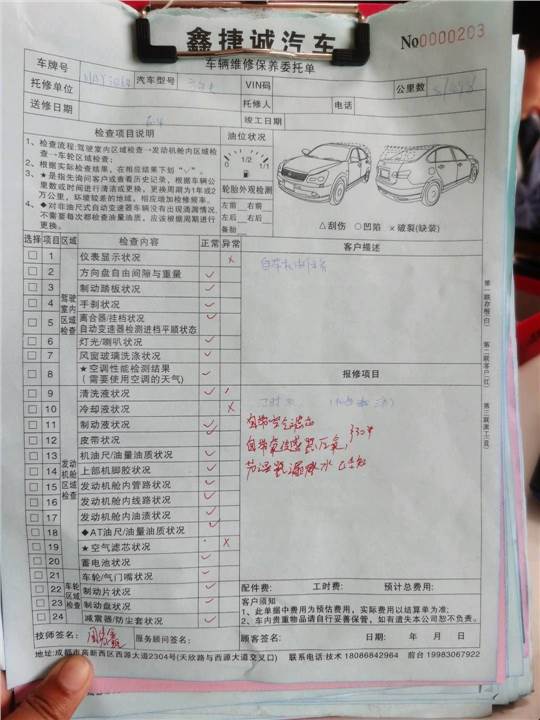 鑫捷诚汽车
No0000203
车辆维修保养委托单
车牌号 汽车型号 VIN码 公里数
托修单位 托修人 电话
送修日期 竣工日期
检查项目说明
1、检查流程:驾驶室内区域检查→发动机舱内区域检查→车轮区域检查;
2、根据实际检查结果,在相应结果下划“✓”。
3、★是指先询问客户或查看历史记录,根据车辆公里数或时间进行清洁或更换,更换周期为1年或2万公里,环境较差的地域,相应增加检修频率。
4、◆对非油尺式自动变速器车辆没有出现滴漏情况,不需要每次都检查油量油质,应该根据周期进行更换。
油位状况
0 1/2 1/1
轮胎外观检测
左前 右前
左后 右后
备胎
△刮伤 ○凹陷 ×破裂(缺装)
选择 项目 区域 检查内容 正常 异常
客户描述
驾驶室内区域检查
1 仪表显示状况 ×
2 方向盘自由间隙与重量 ✓
3 制动踏板状况 ✓
4 手刹状况 ✓
5 离合器/挂档状况 ✓
自动变速器检测进档平顺状态
6 灯光/喇叭状况 ✓
7 风窗玻璃洗涤状况 ✓
8 ★空调性能检测结果 ✓
(需要使用空调的天气)
报修项目
发动机舱区域检查
9 清洗液状况 ✓
10 冷却液状况 ×
11 制动液状况 ✓
12 皮带状况 ✓
13 机油尺/油量油质状况 ✓
14 上部机脚胶状况 ✓
15 发动机舱内管路状况 ✓
16 发动机舱内线路状况 ✓
17 发动机舱内油渍状况 ✓
18 ◆AT油尺/油量油质状况 ✓
19 ★空气滤芯状况 ×
20 蓄电池状况 ✓
车轮区域检查
21 车轮/气门嘴状况 ✓
22 制动片状况 ✓
23 制动盘状况 ✓
24 减震器/防尘套状况 ✓
节温器漏 水
配件费: 工时费: 预计总费用:
客户须知
1、此单据中费用为预估费用,实际费用以结算单为准;
2、车内贵重物品请自行妥善保管,如有遗失本公司恕不负责。
技师签名: 服务顾问签名: 顾客签名: 日期: 年 月 日
地址:成都市高新西区西源大道2304号(天欣路与西源大道交叉口) 联系电话:技术 18086842964 前台 19983067922
第一联存根(白)
第二联客户(红)